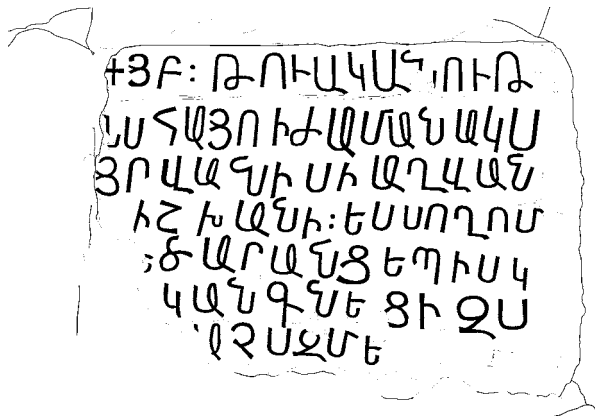 +ՅԲ: ԹՈՒԱԿԱՆ ՈՒԹ
ՆՍ ՀԱՅՈ ԻԺԱՄԱՆԱԿՍ
ՅՐՎԱՆԻՍԻ ԱՂՎԱՆ
ԻՇԽԱՆԻ: ԵՍ ՍՈՂՈՄ
ՃԱՐԱՆՑ ԵՊԻՍԿ
ԿԱՆԳՆԵՑԻ ԶՍ
ՉՍՋՄԵ